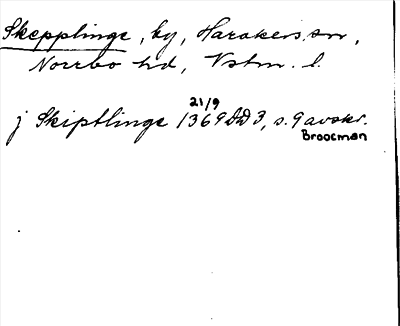 Skepplinge, by, Harakers sn,
Norrbo hd, Vstm. l.
21/9
j Skiptlinge 1369 DD 3, s. 9 avskr.
Broocman